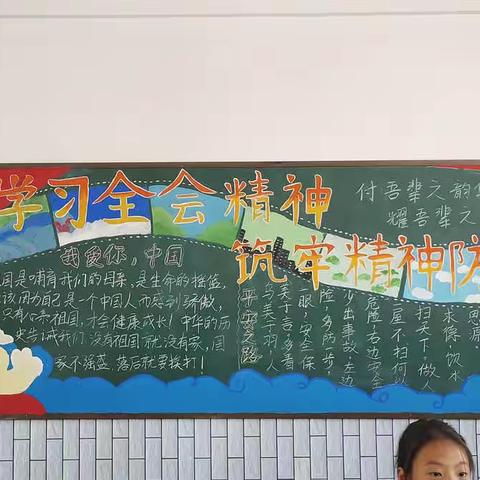 学习全会精神
筑牢精神防
付吾辈之韵华
耀吾辈之
我爱你，中国
国是哺育我们的母亲，是生命的摇篮，
该因为自己是一个中国人而感到骄傲，
只有心系祖国，才会健康成长！中华的历
史告诫我们：没有祖国就没有家，国
家不强盛，落后就要挨打！
思源
求德，饮水
屋不扫何以
扫天下，做人
危险，右边安全
少出事故，左边
险，多两步，
眼，安全保
关于言，多看
平安之路